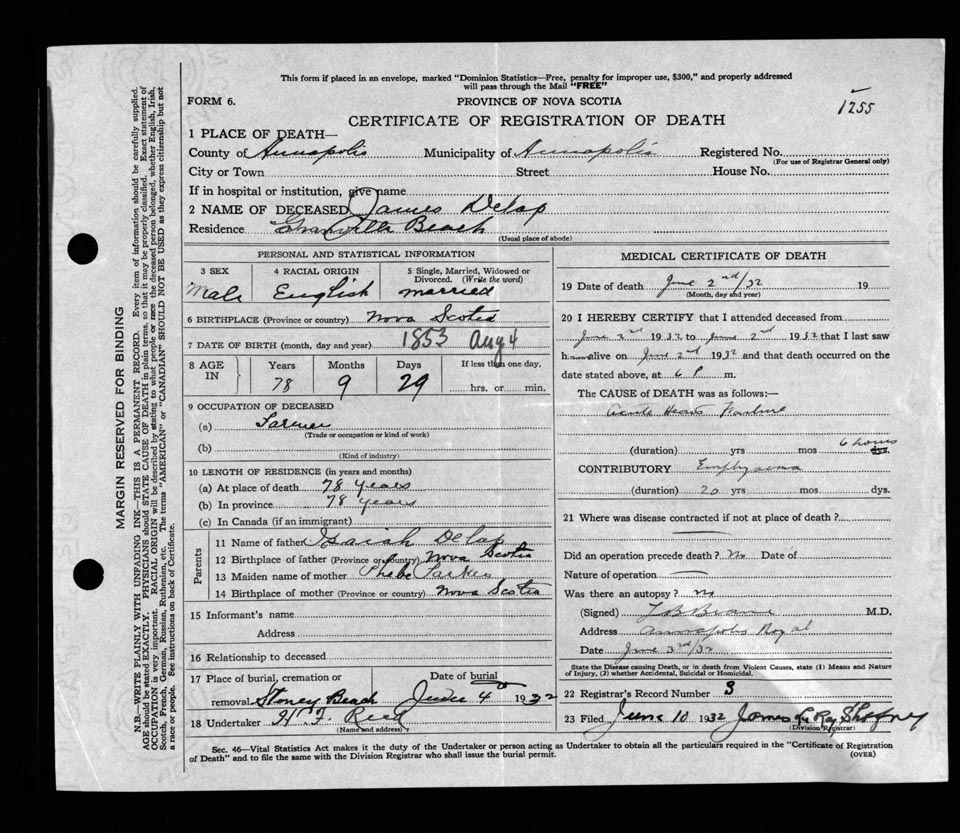 This form if placed in an envelope, marked "Dominion Statistics—Free, penalty for improper use, $300," and properly addressed
will pass through the Mail "FREE"
FORM 6.
PROVINCE OF NOVA SCOTIA
1255
CERTIFICATE OF REGISTRATION OF DEATH
1 PLACE OF DEATH—
County of Annapolis Municipality of Annapolis Registered No.
(For use of Registrar General only)
City or Town Street House No.
If in hospital or institution, give name
2 NAME OF DECEASED James Delap
Residence Granville Beach
(Usual place of abode)
PERSONAL AND STATISTICAL INFORMATION
3 SEX
Male
4 RACIAL ORIGIN
English
5 Single, Married, Widowed or
Divorced. (Write the word)
married
6 BIRTHPLACE (Province or country) Nova Scotia
7 DATE OF BIRTH (month, day and year) 1853 Aug 4
8 AGE
IN
Years
78
Months
9
Days
29
If less than one day,
hrs. or min.
9 OCCUPATION OF DECEASED
(a) Farmer
(Trade or occupation or kind of work)
(b)
(Kind of industry)
10 LENGTH OF RESIDENCE (in years and months)
(a) At place of death 78 years
(b) In province 78 years
(c) In Canada (if an immigrant)
Parents
11 Name of father Isaiah Delap
12 Birthplace of father (Province or country) Nova Scotia
13 Maiden name of mother Phebe Parker
14 Birthplace of mother (Province or country) Nova Scotia
15 Informant's name
Address
16 Relationship to deceased
17 Place of burial, cremation or
removal Stoney Beach
Date of burial
June 4 1932
18 Undertaker H. F. Reed
(Name and address)
MEDICAL CERTIFICATE OF DEATH
19 Date of death June 2nd/32 19
(Month, day and year)
20 I HEREBY CERTIFY that I attended deceased from
June 2nd 1932 to June 2nd 1932 that I last saw
h alive on June 2nd 1932 and that death occurred on the
date stated above, at 6 P m.
The CAUSE of DEATH was as follows:—
Acute Heart Failure
(duration) yrs mos 6 hours dys.
CONTRIBUTORY Emphysema
(duration) 20 yrs mos dys.
21 Where was disease contracted if not at place of death?
Did an operation precede death? No Date of
Nature of operation
Was there an autopsy? No
(Signed) M.D.
Address Annapolis Royal
Date June 3rd/32
State the Disease causing Death, or in death from Violent Causes, state (1) Means and Nature
of Injury, (2) whether Accidental, Suicidal or Homicidal.
22 Registrar's Record Number 3
23 Filed June 10 1932 James
(Division Registrar)
Sec. 46—Vital Statistics Act makes it the duty of the Undertaker or person acting as Undertaker to obtain all the particulars required in the "Certificate of Registration
of Death" and to file the same with the Division Registrar who shall issue the burial permit.
(OVER)
MARGIN RESERVED FOR BINDING
N.B.—WRITE PLAINLY WITH UNFADING INK—THIS IS A PERMANENT RECORD. Every item of information should be carefully supplied.
AGE should be stated EXACTLY. PHYSICIANS should STATE CAUSE OF DEATH in plain terms, so that it may be properly classified. Exact statement of
OCCUPATION is very important. RACIAL ORIGIN will be described by stating to what people or race the deceased person belonged, whether English, Irish,
Scotch, French, German, Russian, Ruthenian, etc. The terms "AMERICAN" or "CANADIAN" SHOULD NOT BE USED as they express citizenship but not
a race or people. See instructions on back of Certificate.